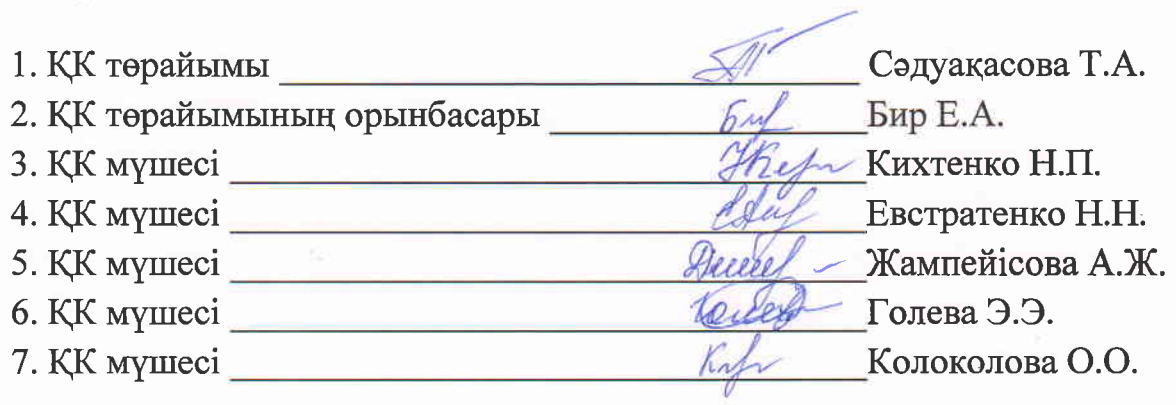 1. ҚК төрайымы Сәдуақасова Т.А.
2. ҚК төрайымының орынбасары Бир Е.А.
3. ҚК мүшесі Кихтенко Н.П.
4. ҚК мүшесі Евстратенко Н.Н.
5. ҚК мүшесі Жампейісова А.Ж.
6. ҚК мүшесі Голева Э.Э.
7. ҚК мүшесі Колоколова О.О.